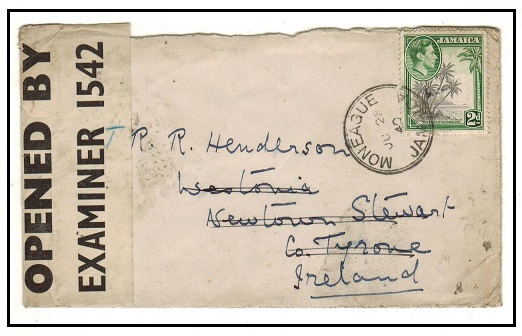 OPENED BY
EXAMINER 1542
T
R. R. Henderson
Westonia
Newtown Stewart
Co. Tyrone
Ireland
MONEAGUE
JU 28
JA
JAMAICA
2d